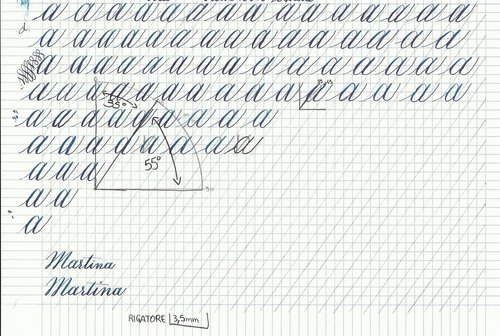 a a a a a a a a a a a a a a a
a a a a a a a a a a a a a a a
a a a a a a a a a a a a a a a a
a a a a a a a a a a a a a a a
35°
a a a a a a a a a
a a a a a a a a
55°
a a a
a a
a
Martina
Martina
RIGATORE 3,5mm